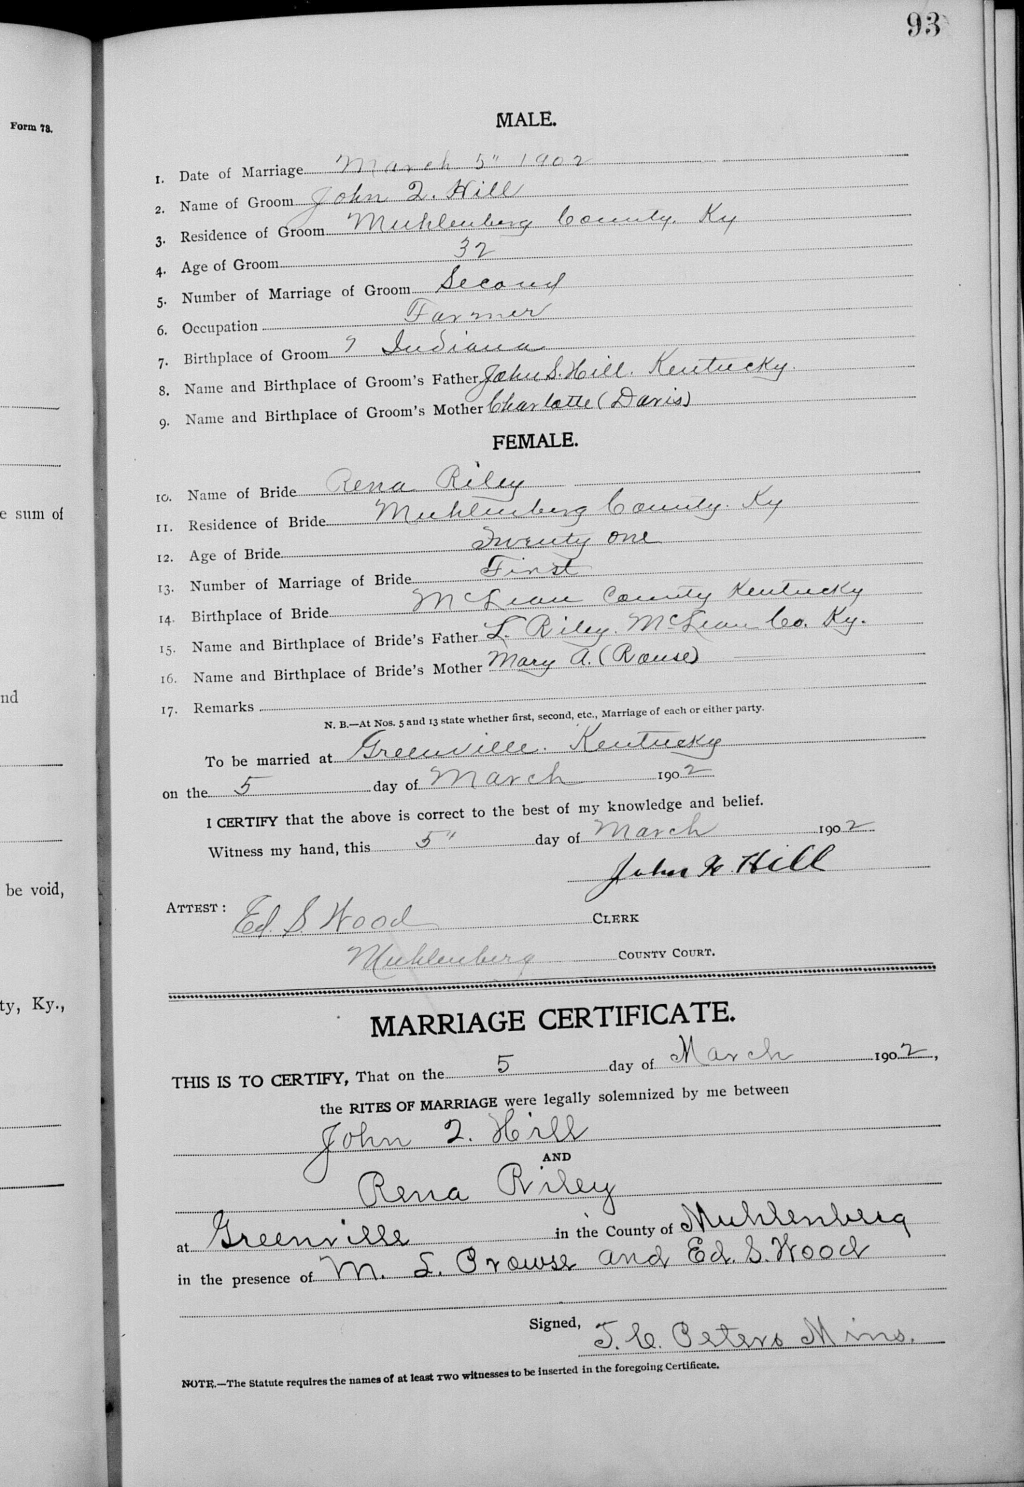 93
Form 78.
MALE.
1. Date of Marriage March 5" 1902
2. Name of Groom John Q. Hill
3. Residence of Groom Muhlenberg County. Ky
4. Age of Groom 32
5. Number of Marriage of Groom Second
6. Occupation Farmer
7. Birthplace of Groom Indiana
8. Name and Birthplace of Groom's Father John S. Hill. Kentucky.
9. Name and Birthplace of Groom's Mother Charlotte (Davis)
FEMALE.
10. Name of Bride Rena Riley
11. Residence of Bride Muhlenberg County. Ky
e sum of
12. Age of Bride Twenty one
13. Number of Marriage of Bride First
14. Birthplace of Bride McLean County Kentucky
15. Name and Birthplace of Bride's Father L. Riley. McLean Co. Ky.
16. Name and Birthplace of Bride's Mother Mary A. (Rouse)
nd
17. Remarks
N. B.—At Nos. 5 and 13 state whether first, second, etc., Marriage of each or either party.
To be married at Greenville. Kentucky
on the 5 day of March 1902
I CERTIFY that the above is correct to the best of my knowledge and belief.
Witness my hand, this 5" day of March 1902
John Hill
be void,
ATTEST: Ed. S Wood CLERK
Muhlenberg COUNTY COURT.
ty, Ky.,
MARRIAGE CERTIFICATE.
THIS IS TO CERTIFY, That on the 5 day of March 1902,
the RITES OF MARRIAGE were legally solemnized by me between
John Q. Hill
AND
Rena Riley
at Greenville in the County of Muhlenberg
in the presence of M. L. Prowse and Ed. S. Wood
Signed, T. C. Peters Mins.
NOTE.—The Statute requires the names of at least TWO witnesses to be inserted in the foregoing Certificate.